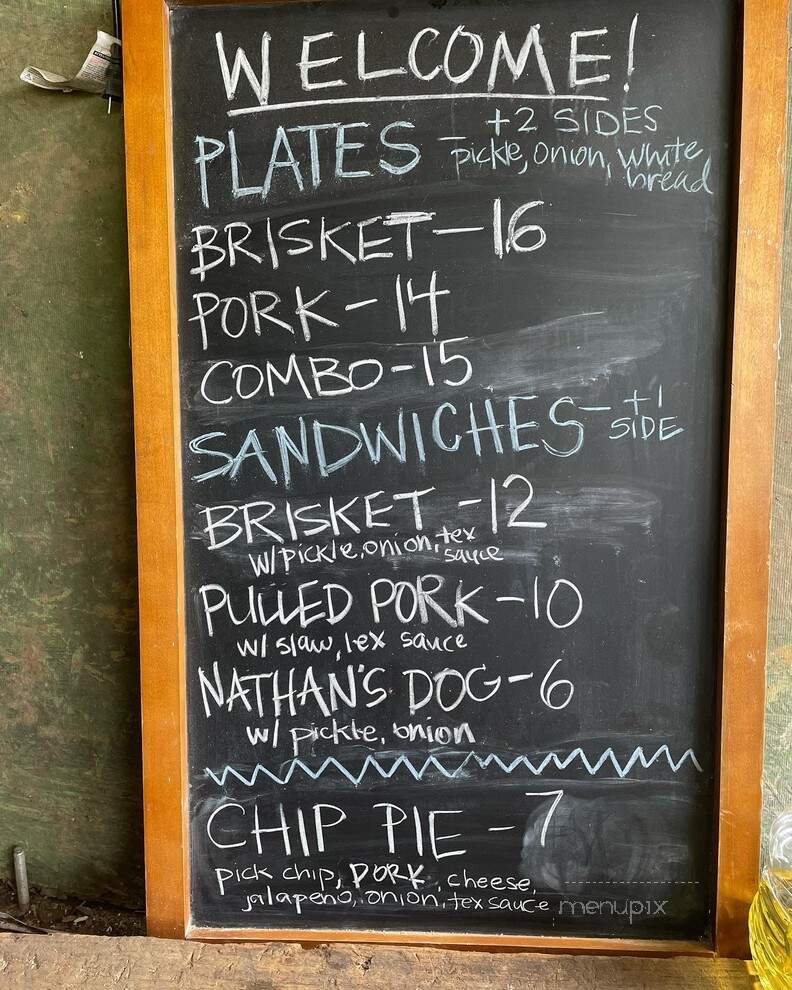 WELCOME!
PLATES - +2 SIDES
pickle, onion, white
bread
BRISKET - 16
PORK - 14
COMBO - 15
SANDWICHES - +1
SIDE
BRISKET - 12
w/ pickle, onion, tex
sauce
PULLED PORK - 10
w/ slaw, tex sauce
NATHAN'S DOG - 6
w/ pickle, onion
CHIP PIE - 7
pick chip, PORK, cheese,
jalapeño, onion, tex sauce
menupix